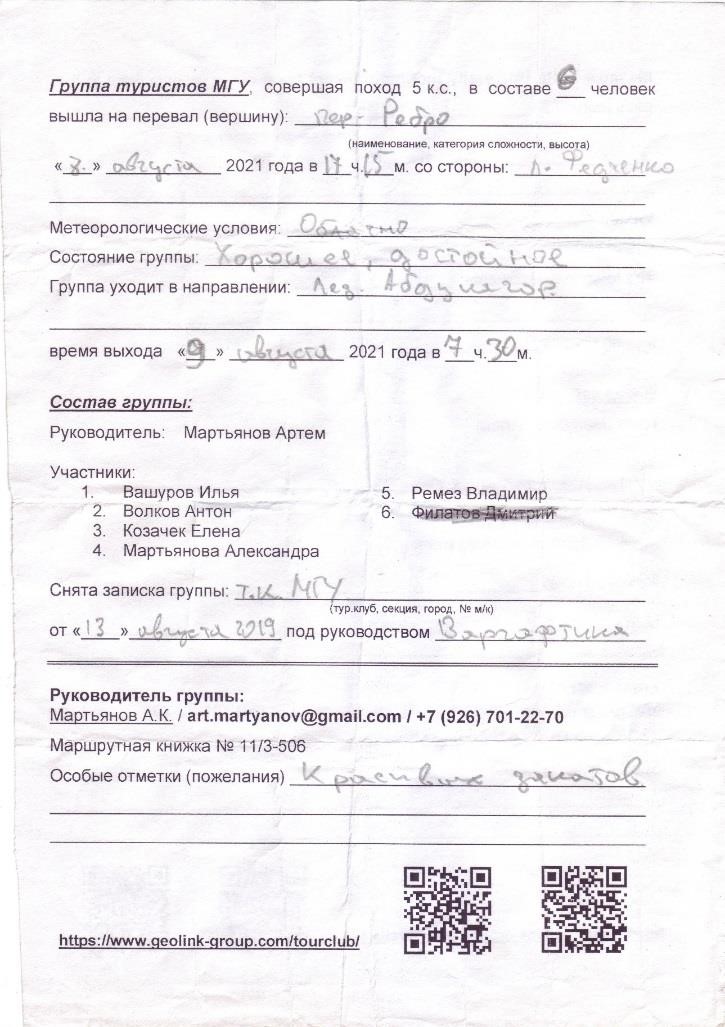 Группа туристов МГУ, совершая поход 5 к.с., в составе 6 человек
вышла на перевал (вершину): пер. Ребро
(наименование, категория сложности, высота)
« 8. » августа 2021 года в 17 ч. 15 м. со стороны: л. Федченко
Метеорологические условия: Облачно
Состояние группы: Хорошее, достойное
Группа уходит в направлении: Лед. Абдукагор.
время выхода «9» августа 2021 года в 7 ч. 30 м.
Состав группы:
Руководитель: Мартьянов Артем
Участники:
1. Вашуров Илья
2. Волков Антон
3. Козачек Елена
4. Мартьянова Александра
5. Ремез Владимир
6. Филатов Дмитрий
Снята записка группы: Т.К. МГУ
(тур.клуб, секция, город, № м/к)
от «13» августа 2019 под руководством Варгафтика
Руководитель группы:
Мартьянов А.К. / art.martyanov@gmail.com / +7 (926) 701-22-70
Маршрутная книжка № 11/3-506
Особые отметки (пожелания) Красивых закатов
https://www.geolink-group.com/tourclub/